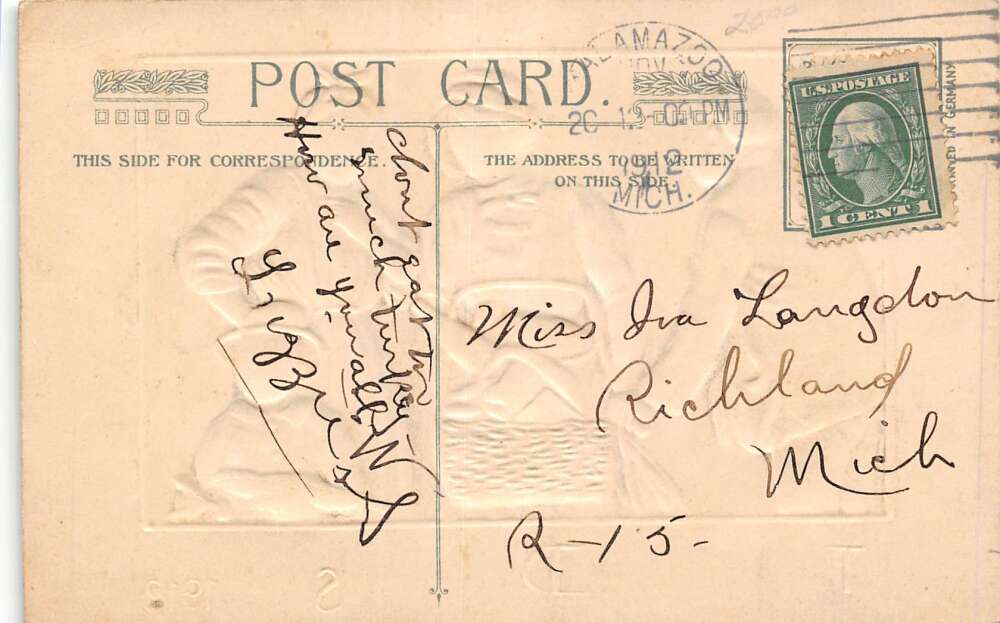 2000
KALAMAZOO
NOV
20 12 - 01 PM
1912
MICH.
POST CARD.
THIS SIDE FOR CORRESPONDENCE.
THE ADDRESS TO BE WRITTEN
ON THIS SIDE.
U.S. POSTAGE
1 CENT 1
IN GERMANY
Dont eat too
much turkey
How are you all
Miss Iva Langdon
Richland
Mich
R-15-